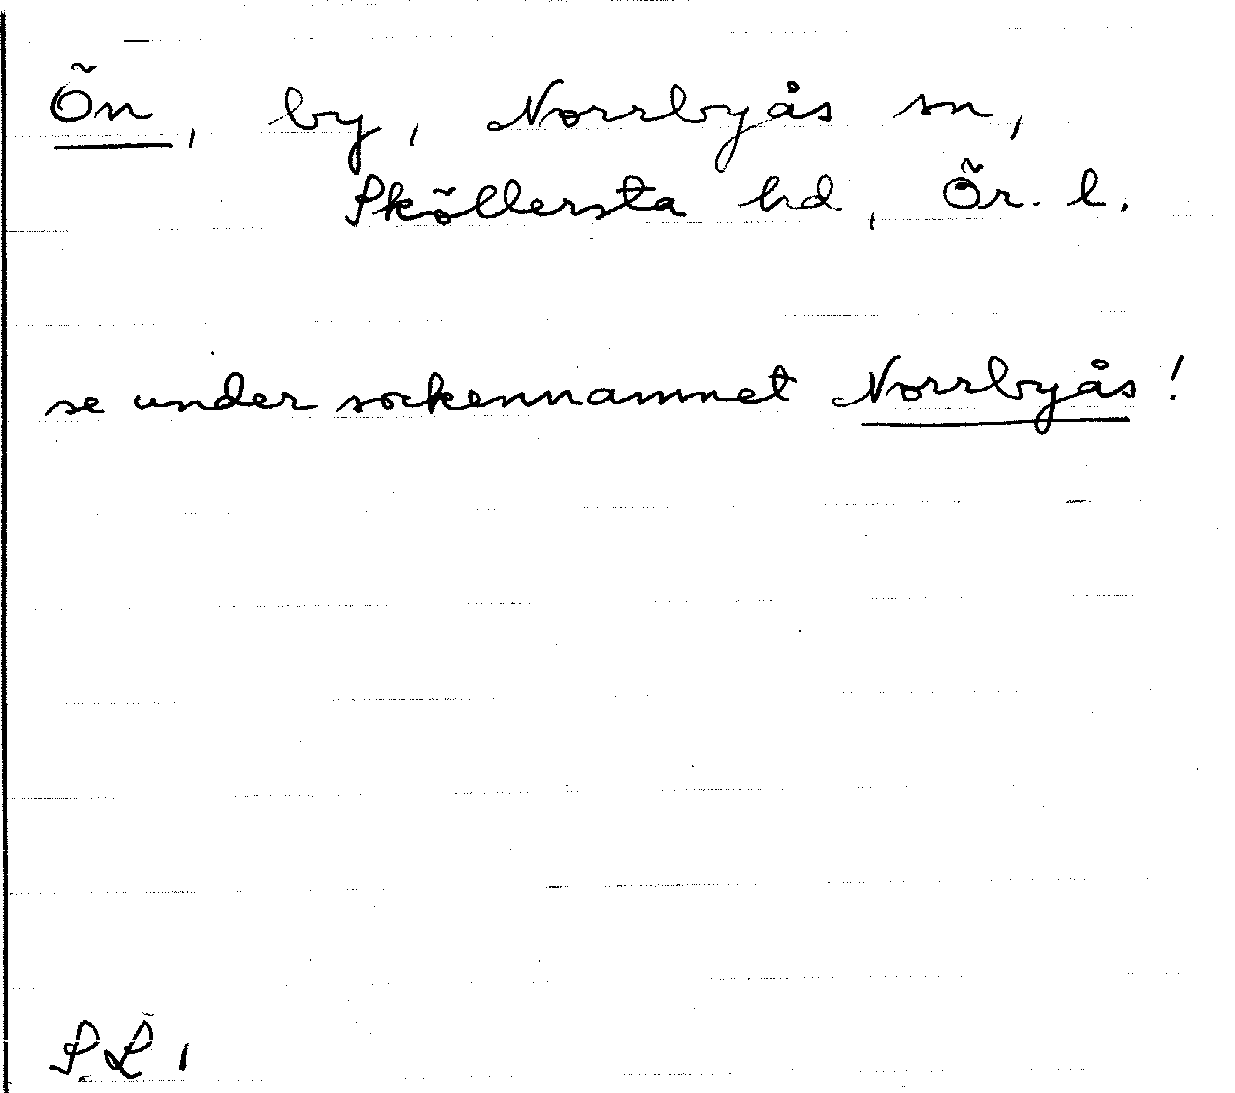 Ön, by, Norrbyås sn,
Sköllersta hd, Ör. l.
se under sockennamnet Norrbyås!